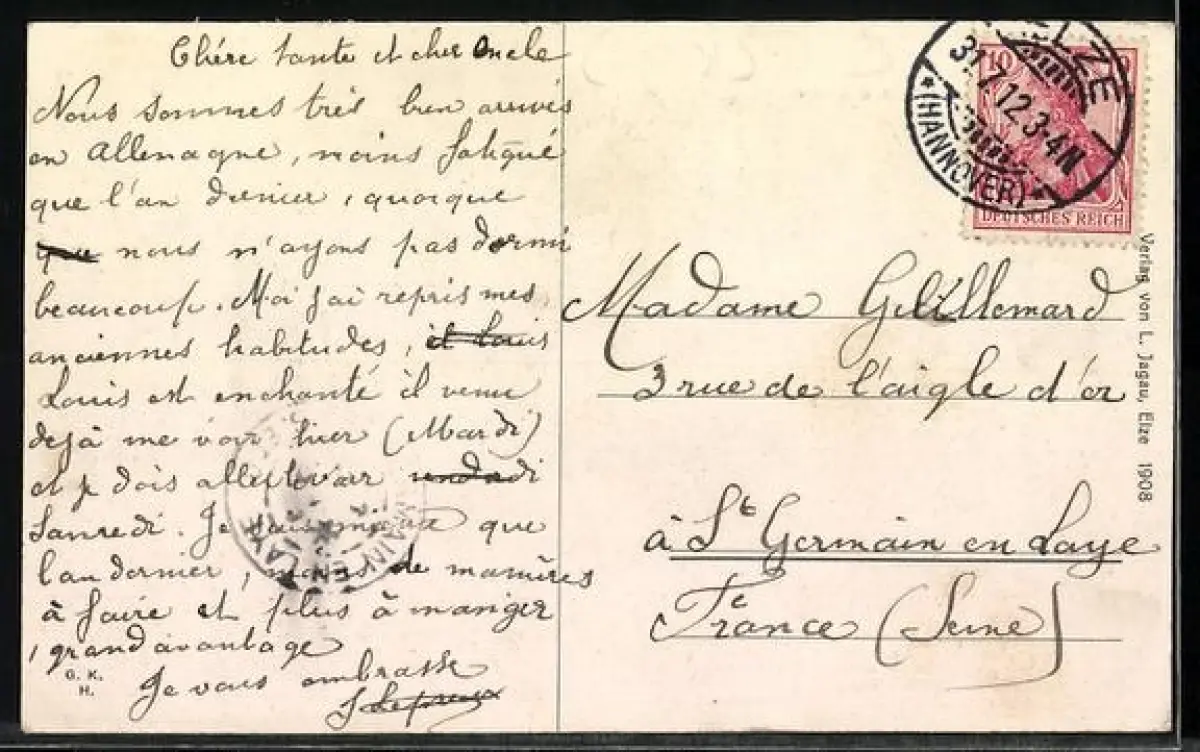 Chére tante et cher Oncle
Nous sommes très bien arrivés
en Allemagne, moins fatigué
que l'an dernier, quoique
que nous n'ayons pas dormi
beaucoup. Moi j'ai repris mes
anciennes habitudes, et Louis
Louis est enchanté il venu
dejà me voir hier (Mardi)
et je dois aller le voir vendredi
Samedi. Je suis mieux que
l'an dernier, moins de manières
à faire et plus à manger
, grand avantage
Je vous ambrasse
G. K.
H.
ELZE
31.7.12.3-4N
*(HANNOVER)*
10
DEUTSCHES REICH
Madame Gelillemard
3 rue de l'aigle d'or
à St Germain en Laye
France (Seine)
Verlag von L. Jagau, Elze 1908
ST GERMAIN EN LAYE